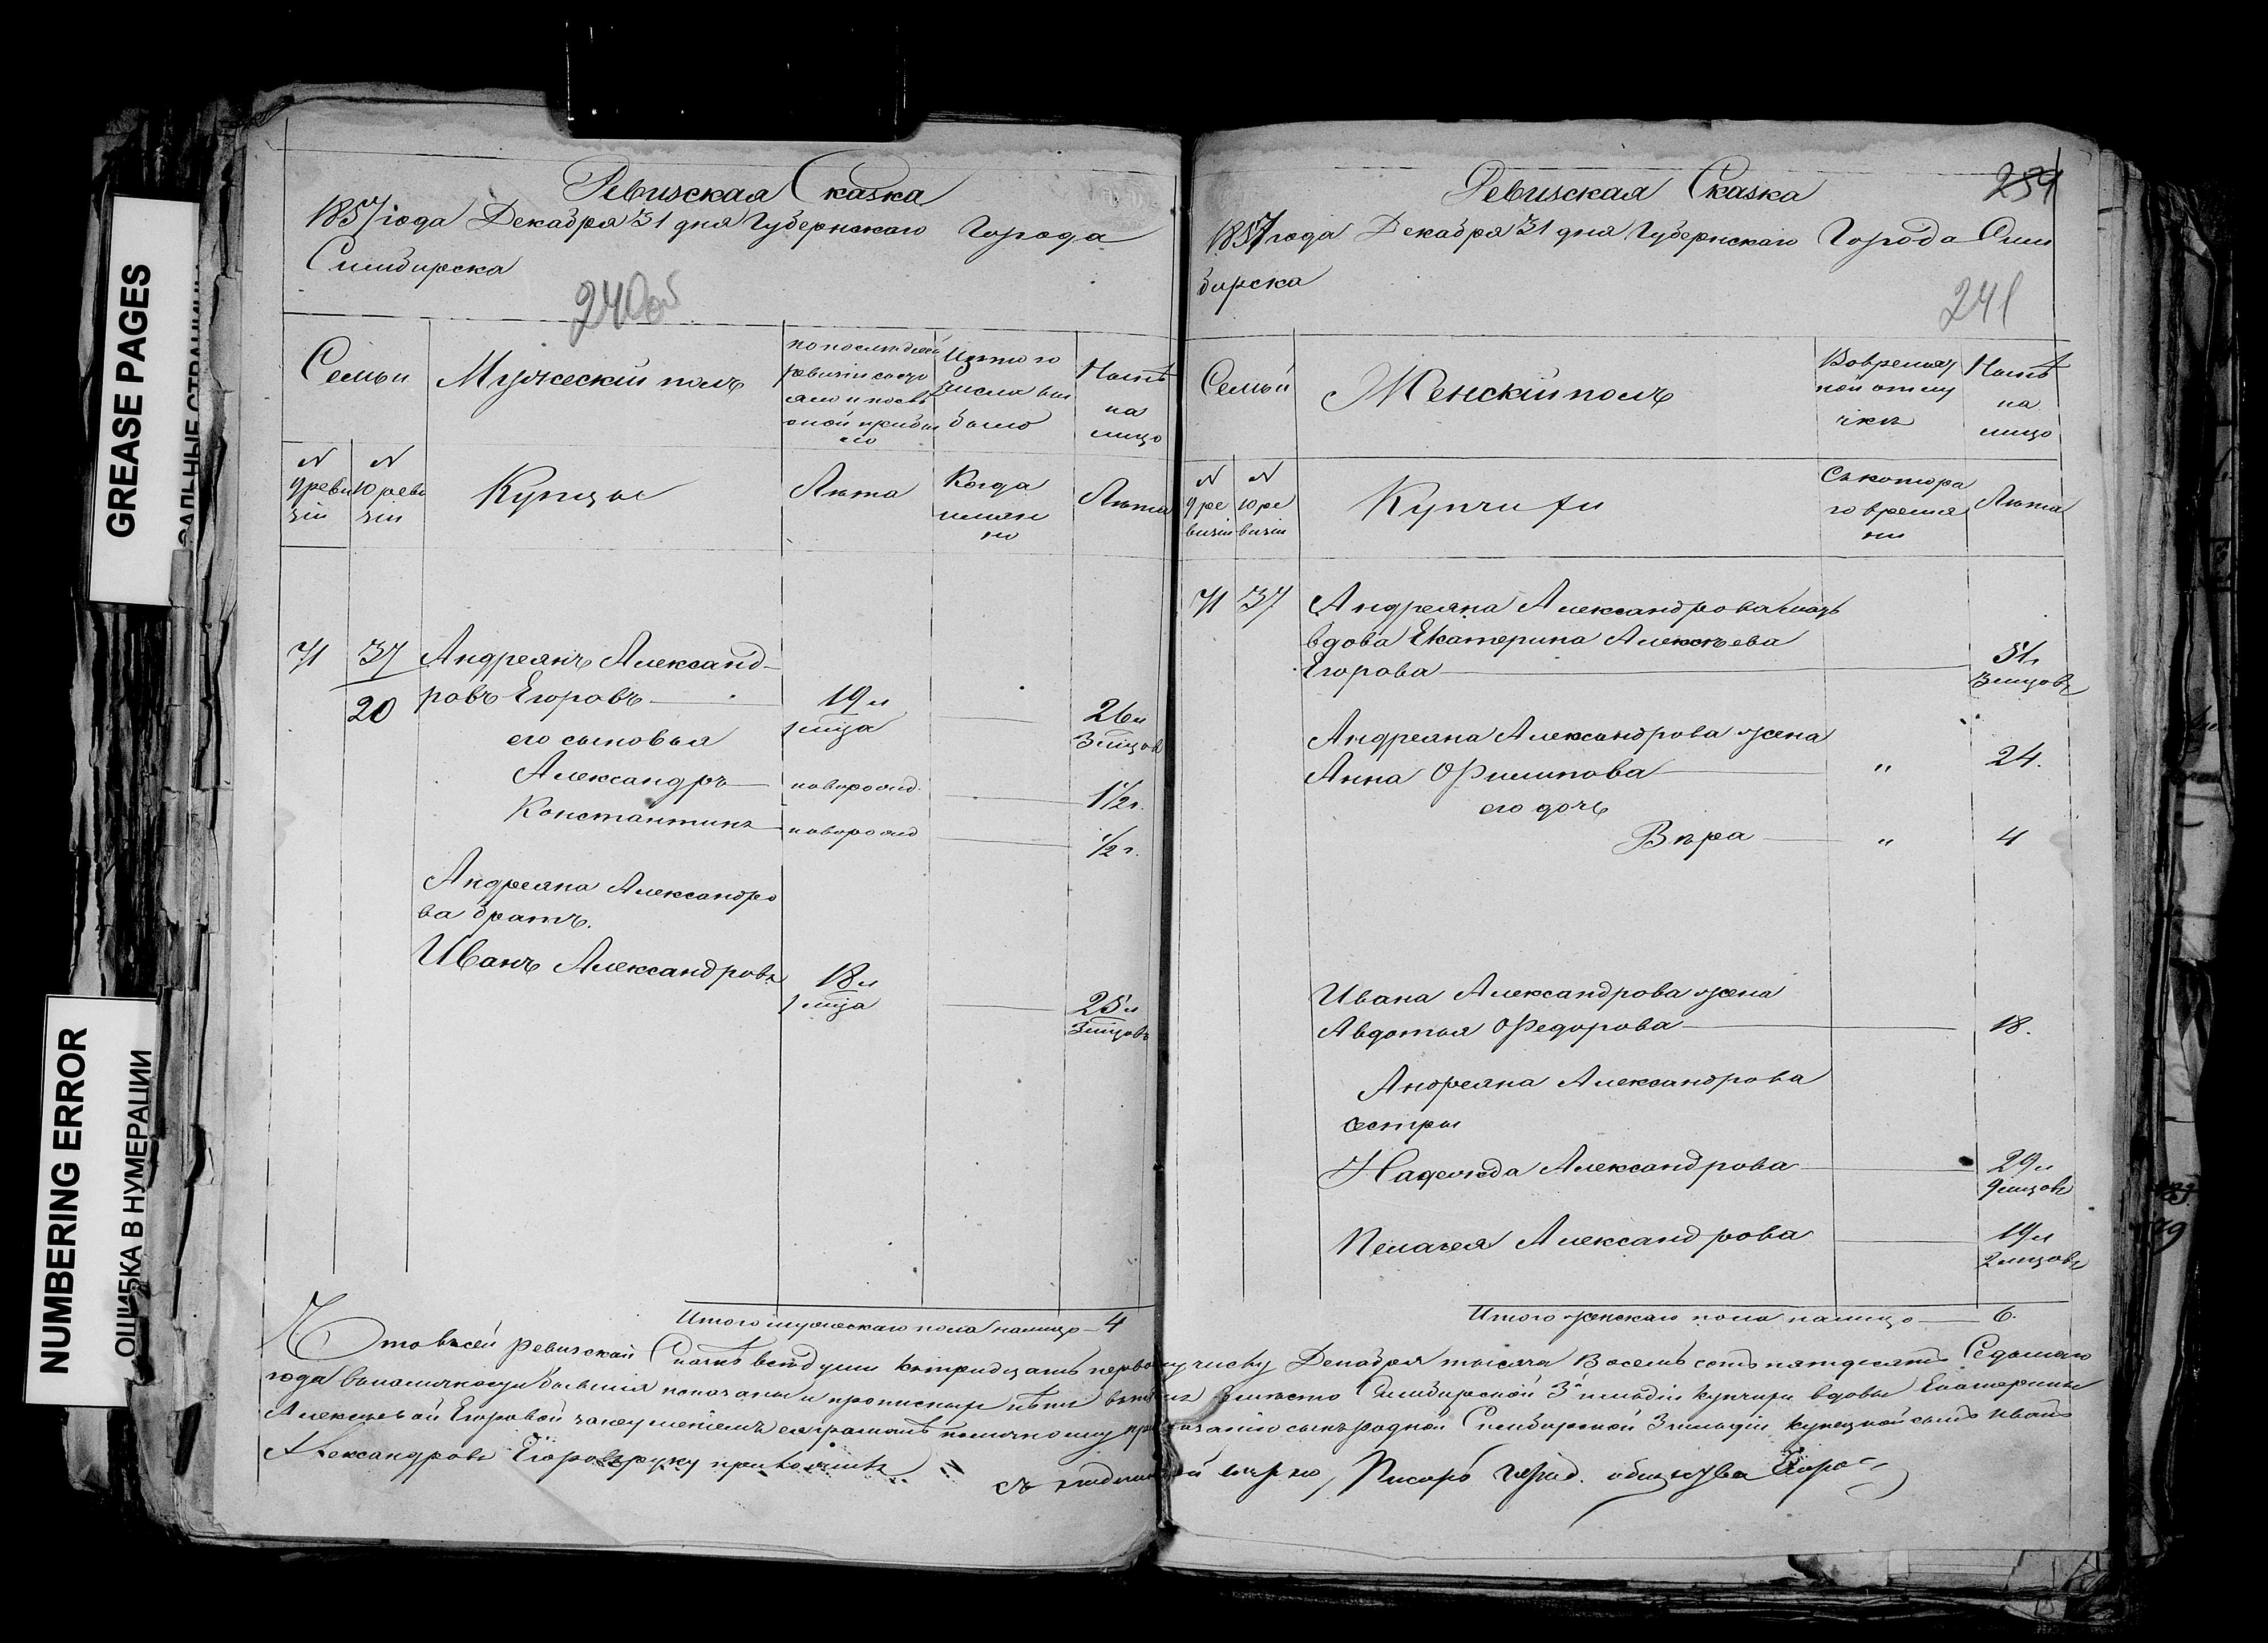 GREASE PAGES
NUMBERING ERROR
ОШИБКА В НУМЕРАЦИИ
Ревизская Сказка
1857 года Декабря 31 дня Губернскаго Города
Симбирска
240об
Семьи
Мужеский полъ
по последней
ревизіи состо
яло и после
оной прибы
ло
Изъ того
числа вы
было
Ныне
на
лицо
N
9 реви
зіи
N
10 реви
зіи
Купцы
Лѣта
Когда
имян
но
Лѣта
71
37
20
Андреянъ Александ-
ровъ Егоровъ
19 л
1 мца
26 л
3 мцов
его сыновья
Александръ
новорожд.
1 1/2 г.
Константинъ
новорожд
1/2 г.
Андреяна Александро
ва братъ.
Иванъ Александровъ
18 л
1 мца
25 л
3 мцовъ
Итого мужескаго пола налицо 4
Ревизская Сказка
234
1857 года Декабря 31 дня Губернскаго Города Сим
бирска
241
Семьи
Женскій полъ
Во времян
ной отлу
чке
Ныне
на
лицо
N
9 ре
визіи
N
10 ре
визіи
Купчихи
Съ котора
го время
ни
Лѣта
71 37
Андреяна Александрова мать
вдова Екатерина Алексѣева
Егорова
51 г
3 мцовъ
Андреяна Александрова жена
Анна Филипова
" 24.
его дочь
Вѣра " 4
Ивана Александрова жена
Авдотья Федорова 18.
Андреяна Александрова
сестры
Надежда Александрова
29 л
9 мцовъ
Пелагея Александрова
19 л
2 мцовъ
Итого женскаго пола налицо 6.
Что в сей ревизской Сказке все души к тридцать первому числу Декабря тысяча Восемь сотъ пятдесятъ Седьмаго
года в наличности бывшия показаны и прописных нетъ в том Симбирской 3й гильдіи купчихи вдовы Екатерины
Алексеевой Егоровой за неумениемъ ея грамоте по личному сынъ родной Симбирской 3 гильдіи купецкой сынъ Иванъ
Александровъ Егоровъ руку приложилъ
съ подлинной верно, Писарь град. общества